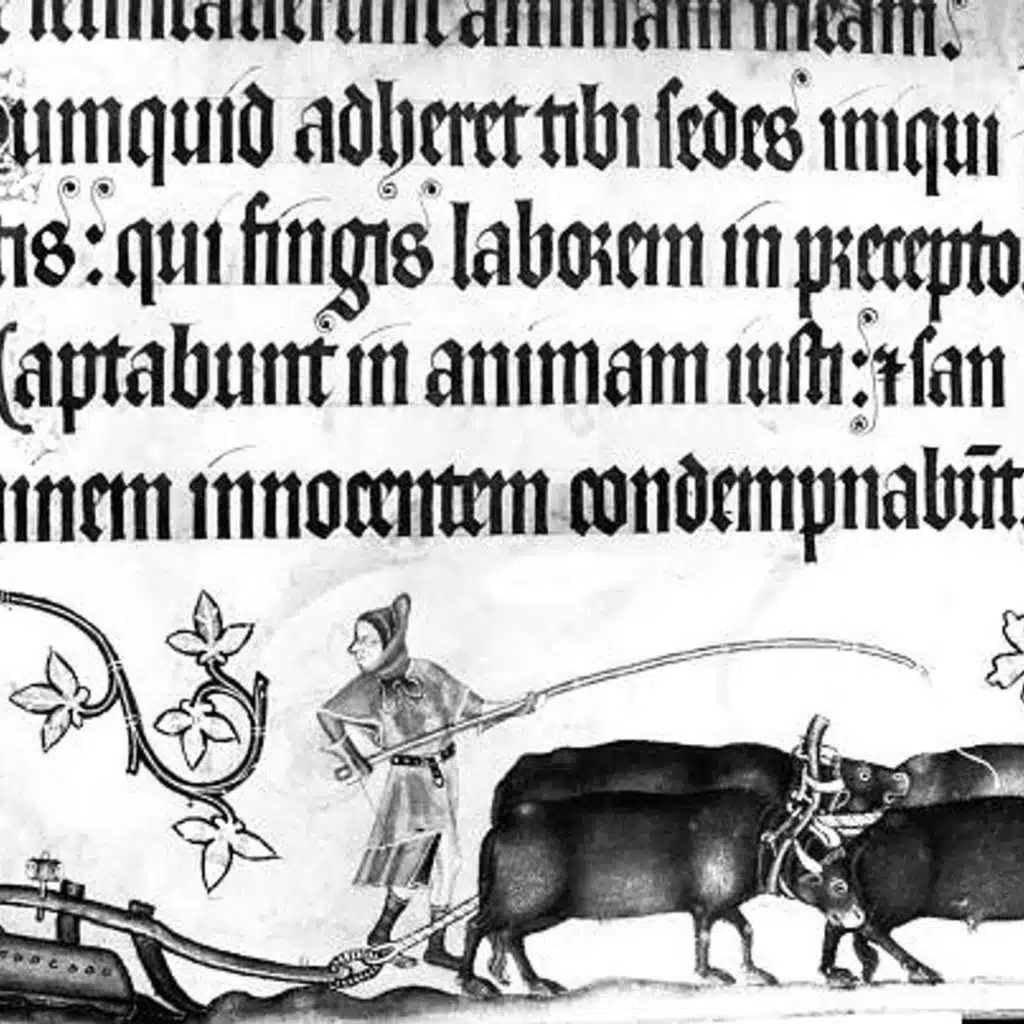 temtauerunt animam meam.
umquid adheret tibi sedes iniqui
tis: qui fingis laborem in precepto.
Captabunt in animam iusti: ⁊ san
uinem innocentem condempnabūt.